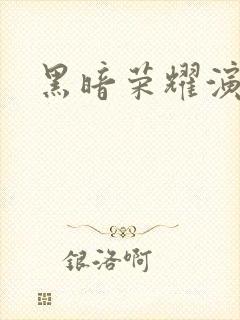 黑暗荣耀演
银洛啊